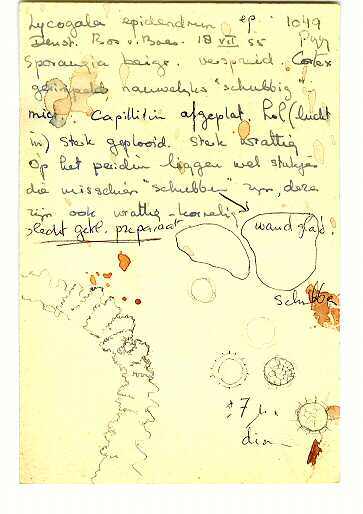 Lycogala epidendrum ep. 1049
Denst. Bos v. Boas. 18 VII 55
Sporangia beige. verspreid. Cortex
gerimpeld nauwelijks "schubbig"
micr. Capillitium afgeplat. hol (lucht
in) sterk geplooid. sterk wrattig
Op het peridium liggen wel stukjes
die misschien "schubben" zijn, deze
zijn ook wrattig-korrelig
slecht gekl. preparaat
wand glad.
schubbe
± 7 µ.
diam